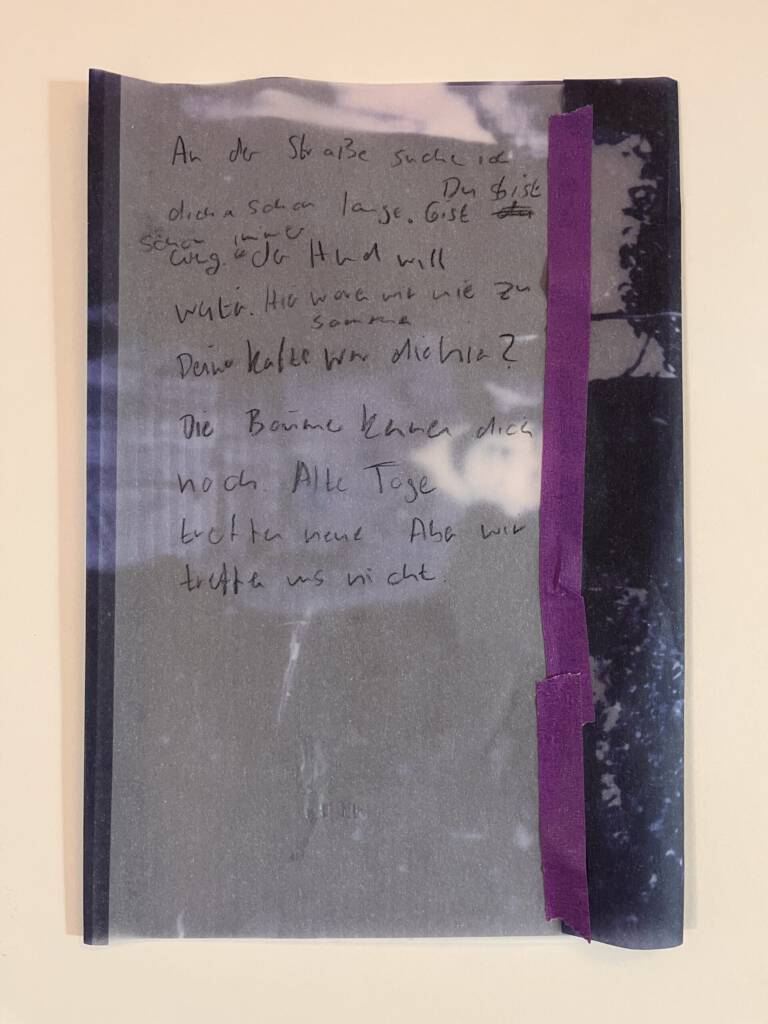 An der Straße suche ich
Du bist
dich schon lange. bist
schon immer
weg. der Hund will
weiter. Hier waren wir nie zu
samme
Deine Katze war dichin?
Die Bäume kennen dich
noch. Alte Tage
treffen neue Aber wir
treffen uns nicht.